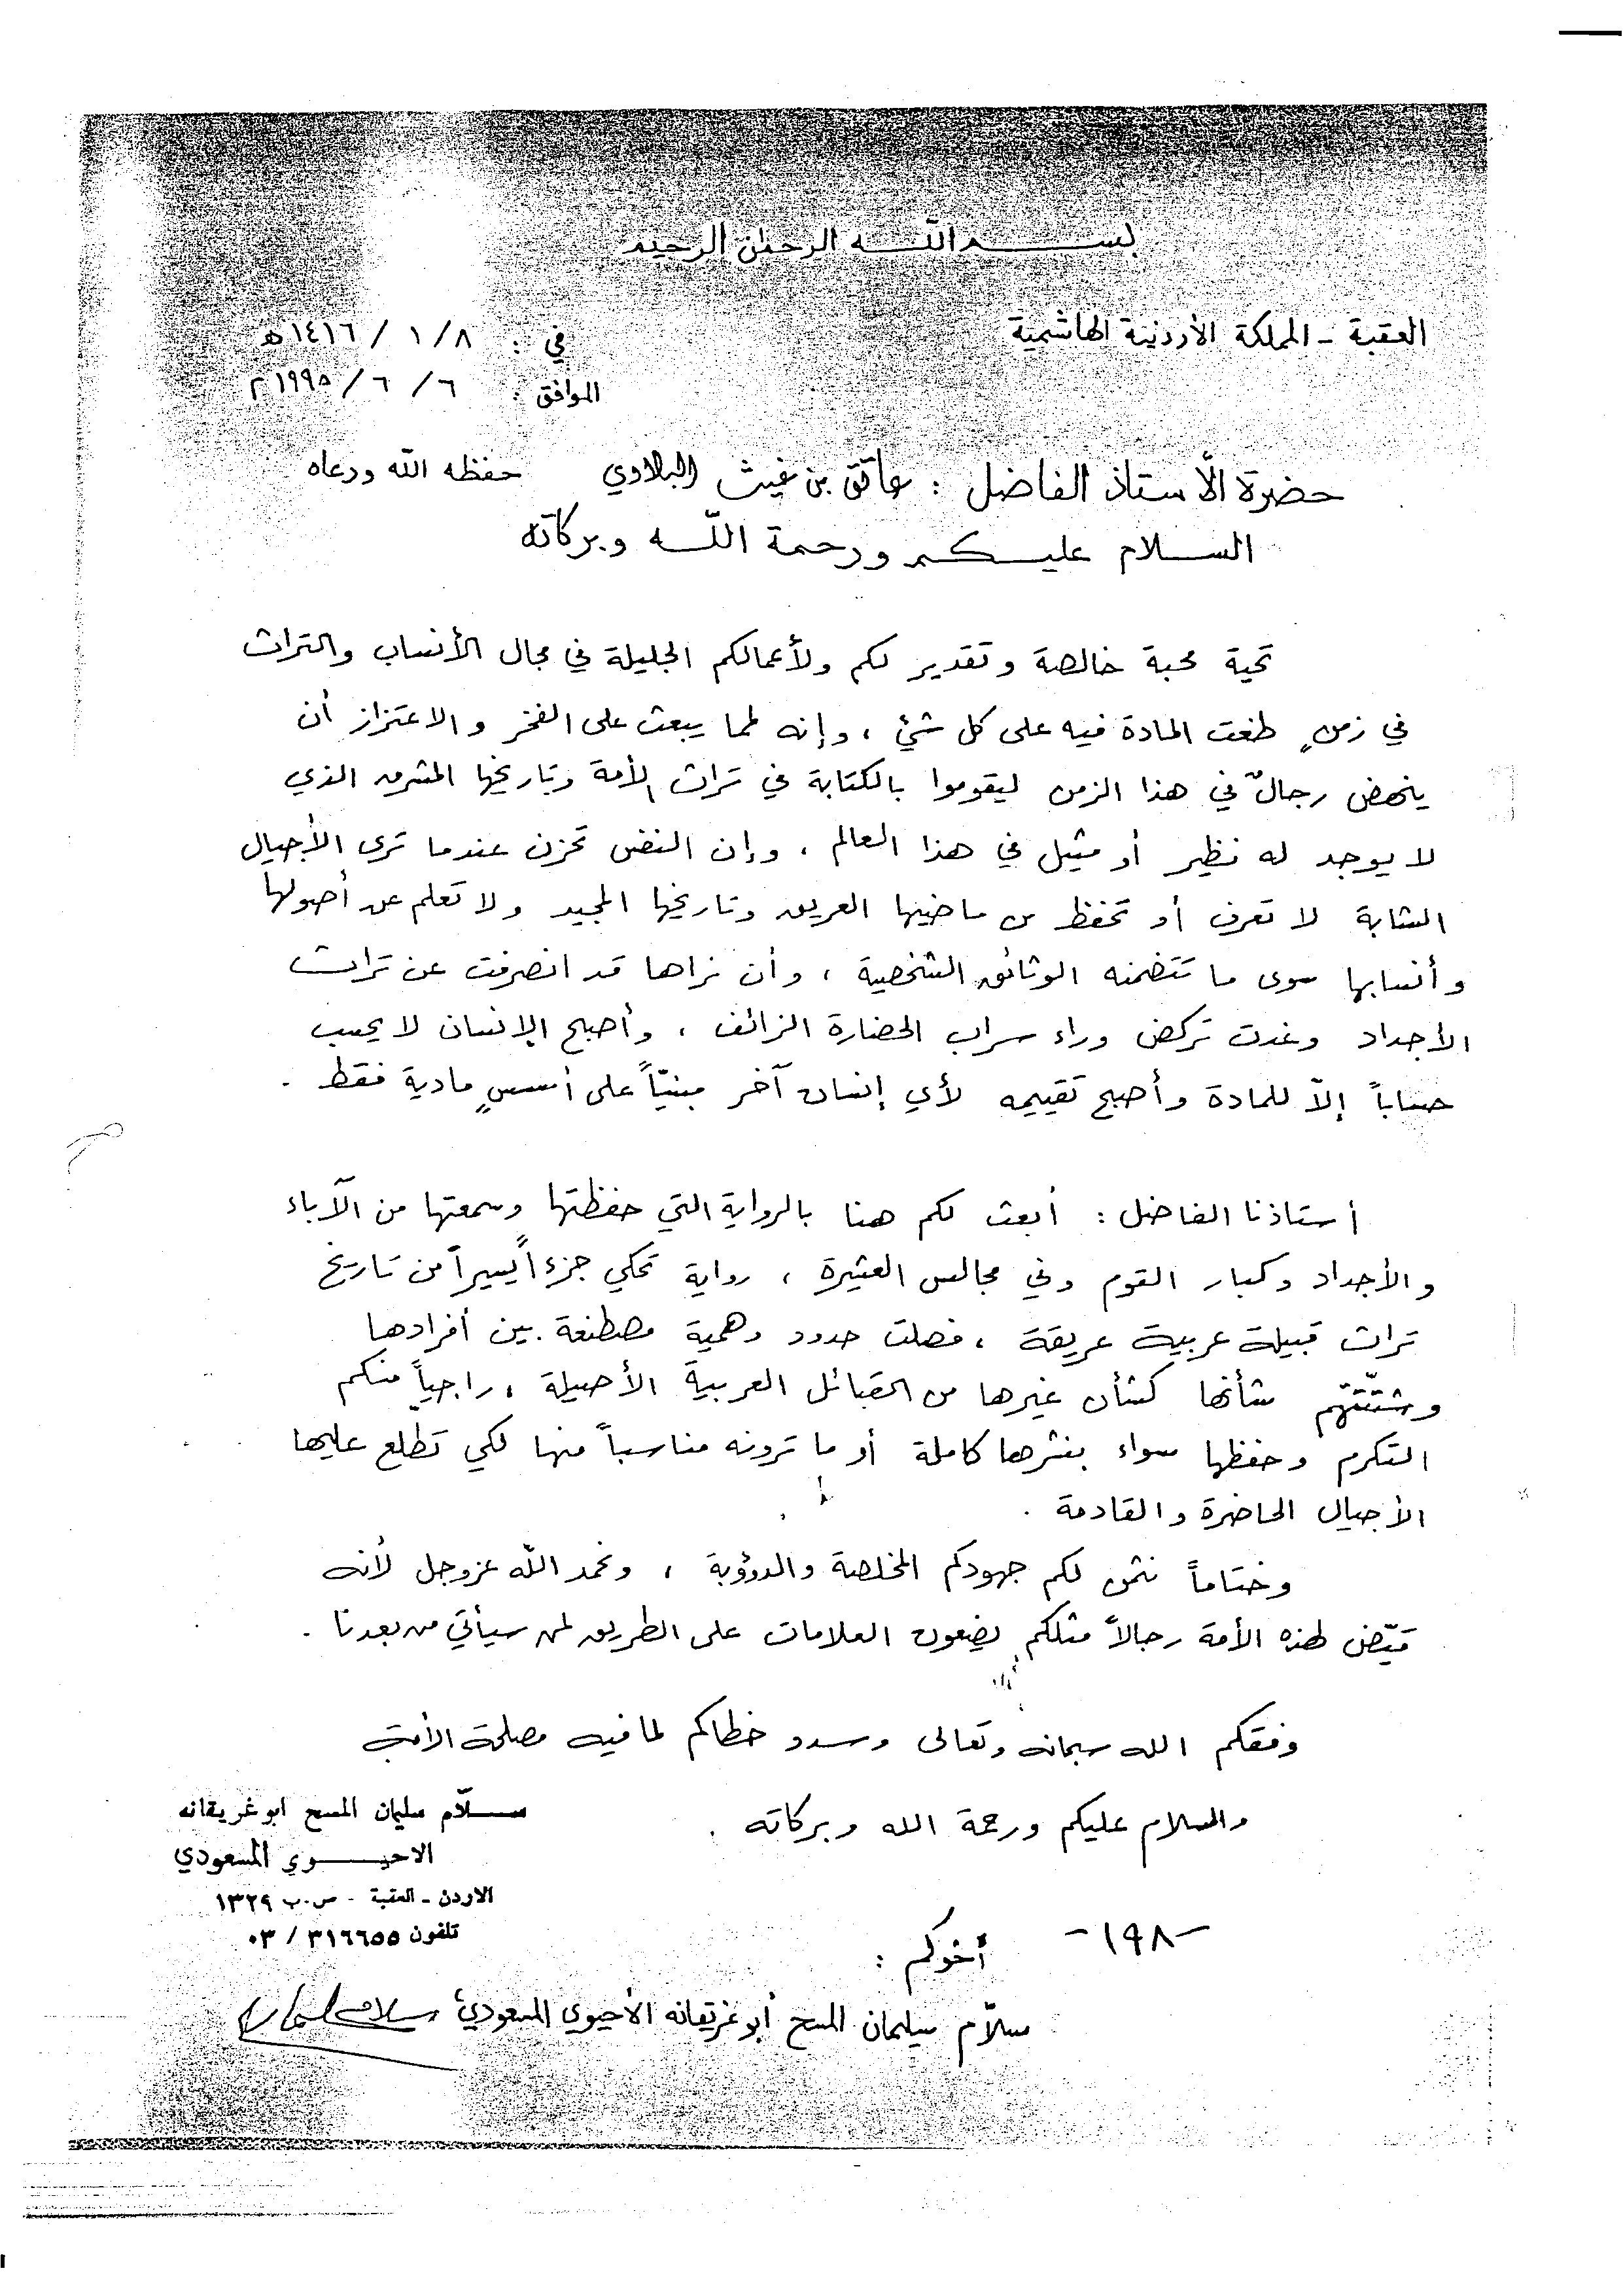 بسم الله الرحمن الرحيم
العقبة - المملكة الأردنية الهاشمية
في : ٨ / ١ / ١٤١٦ هـ
الموافق : ٦ / ٦ / ١٩٩٥ م
حضرة الأستاذ الفاضل : عاتق بن غيث البلادي حفظه الله ورعاه
السلام عليكم ورحمة الله وبركاته
تحية محبة خالصة وتقدير لكم ولأعمالكم الجليلة في مجال الأنساب والتراث
في زمنٍ طغت المادة فيه على كل شيْ ، وإنه لمما يبعث على الفخر والاعتزاز أن
ينهض رجالٌ في هذا الزمن ليقوموا بالكتابة في تراث الأمة وتاريخها المشرف الذي
لا يوجد له نظير أو مثيل في هذا العالم ، وإن النفس تحزن عندما ترى الأجيال
الشابة لا تعرف أو تحفظ من ماضيها العريق وتاريخها المجيد ولا تعلم عن أصولها
وأنسابها سوى ما تتضمنه الوثائق الشخصية ، وأن نراها قد انصرفت عن تراث
الأجداد وغدت تركض وراء سراب الحضارة الزائف ، وأصبح الإنسان لا يحسب
حساباً إلاّ للمادة وأصبح تقييمه لأي إنسان آخر مبنيّاً على أسسٍ مادية فقط .
أستاذنا الفاضل : أبعث لكم هنا بالرواية التي حفظتها وسمعتها من الآباء
والأجداد وكبار القوم وفي مجالس العشيرة ، رواية تحكي جزءاً يسيراً من تاريخ
تراث قبيلة عربية عريقة ، فصلت حدود وهمية مصطنعة بين أفرادها
وشتّتتهم شأنها كشأن غيرها من القبائل العربية الأصيلة ، راجياً منكم
التكرم وحفظها سواء بنشرها كاملة أو ما ترونه مناسباً منها لكي تطلع عليها
الأجيال الحاضرة والقادمة .
وختاماً نثمن لكم جهودكم المخلصة والدؤوبة ، ونحمد الله عزوجل لأنه
قيّض لهذه الأمة رجالاً مثلكم يضعون العلامات على الطريق لمن سيأتي من بعدنا .
وفقكم الله سبحانه وتعالى وسدد خطاكم لما فيه مصلحة الأمة
والسلام عليكم ورحمة الله وبركاته .
ســلاّم سليمان المسح ابو غريقانه
الاحيـــوي المسعودي
الاردن - العقبة - ص.ب ١٣٢٩
تلفون ٣١٦٦٥٥ / ٠٣
-١٩٨-
أخوكم :
سلاّم سليمان المسح أبو غريقانه الأحيوي المسعودي